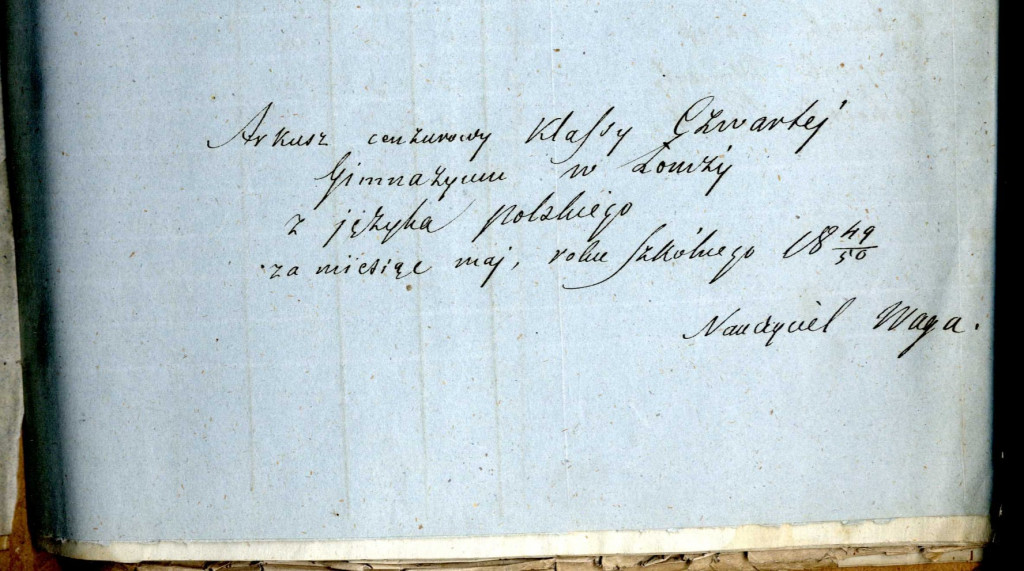 Arkusz cenzurowy Klassy Czwartej
Gimnazyum w Łomży
z języka polskiego
za miesiąc maj, roku szkólnego 18 49/50
Nauczyciel Waga.